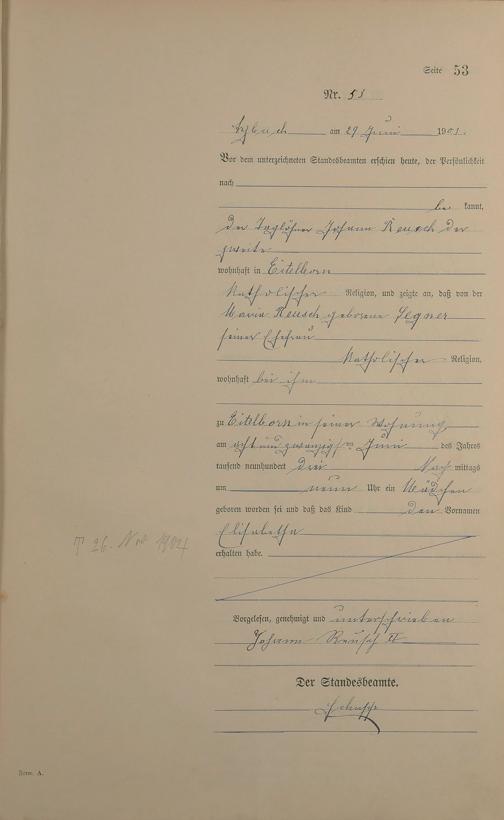 Seite 53
Nr. 53
am 29 Juni 1903.
Vor dem unterzeichneten Standesbeamten erschien heute, der Persönlichkeit
nach
be kannt,
der Taglöhner Johann Reusch der
zweite
wohnhaft in Eitelborn
katholischer Religion, und zeigte an, daß von der
Maria Reusch geborene Legner
seiner Ehefrau
katholischer Religion,
wohnhaft bei ihm
zu Eitelborn in seiner Wohnung
am acht und zwanzigsten Juni des Jahres
tausend neunhundert drei Nach mittags
um neun Uhr ein Mädchen
geboren worden sei und daß das Kind den Vornamen
Elisabetha
erhalten habe.
† 26. Nov 1904
Vorgelesen, genehmigt und unterschrieben
Johann Reusch II
Der Standesbeamte.
Form. A.